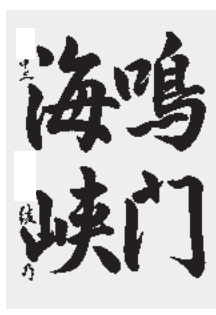 鳴門
海峡
中三 綾乃